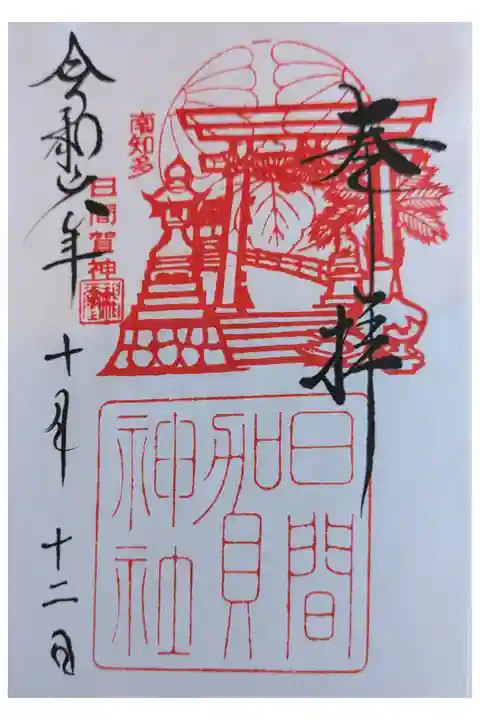 奉拝
南知多
日間賀神
日間賀神社
令和六年十月十二日